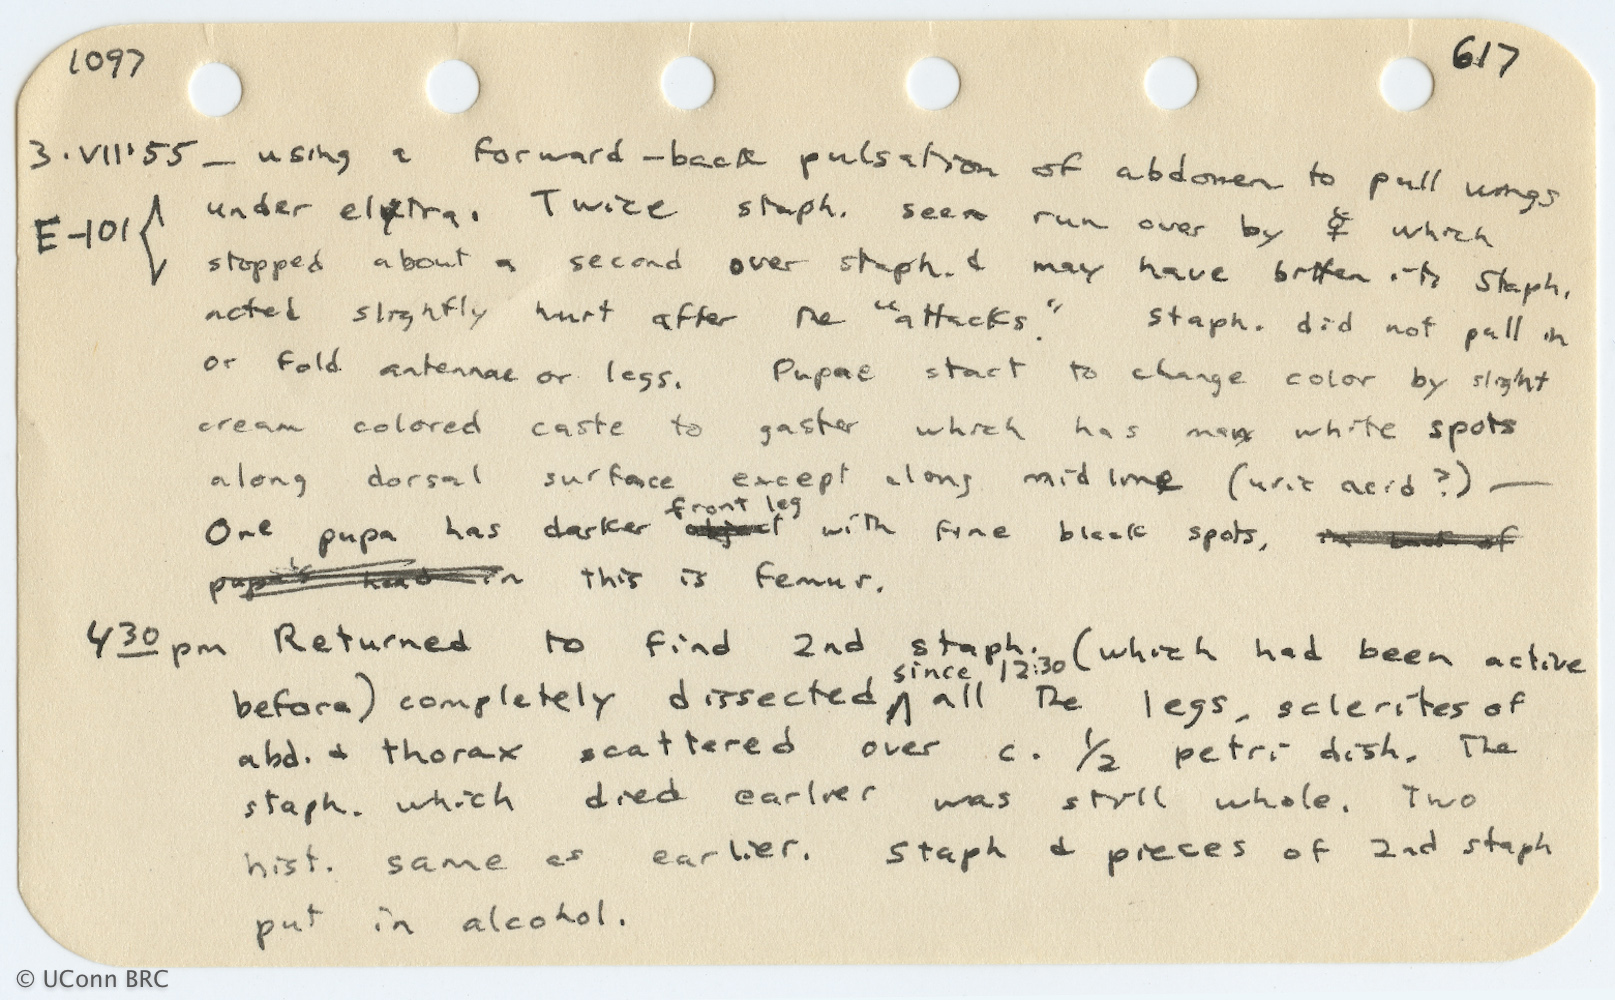 1097 617
3.VII'55 — using a forward-back pulsation of abdomen to pull wings
E-101 { under elytra. Twice staph. seen run over by ☿ which
stopped about a second over staph. & may have bitten it. Staph.
acted slightly hurt after the "attacks." Staph. did not pull in
or fold antennae or legs. Pupae start to change color by slight
cream colored caste to gaster which has many white spots
along dorsal surface except along midline (uric acid?) —
front leg
One pupa has darker object with fine black spots, in back of
pupa's head in this is femur.
4 30 pm Returned to find 2nd staph. (which had been active
since 12:30
before) completely dissected ∧ all the legs, sclerites of
abd. & thorax scattered over c. 1/2 petri dish. The
staph. which died earlier was still whole. Two
hist. same as earlier. Staph & pieces of 2nd staph
put in alcohol.
© UConn BRC